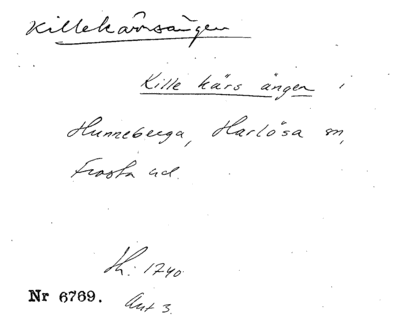 Killekärrsängen
Kille kärs ängen i
Hunneberga, Harlösa sn,
Frosta hd.
Sk. 1740
Nr 6769. Akt 3.